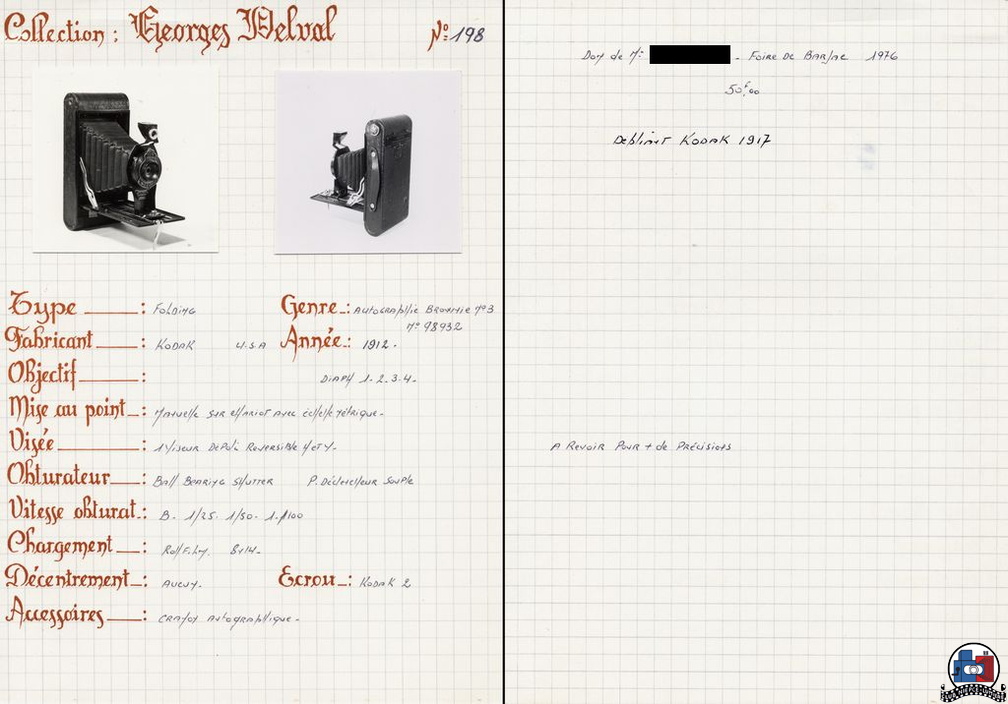 Collection : Georges Delval
N° 198
Type : Folding
Genre : Autographic Brownie n° 3
n° 98932
Fabricant : Kodak U.S.A
Année : 1912.
Objectif : Diaph 1.2.3.4.
Mise au point : Manuelle sur chariot avec échelle métrique.
Visée : 1 Viseur Dépoli Réversible H et V.
Obturateur : Ball Bearing Shutter P. Déclencheur Souple
Vitesse obturat. : B. 1/25. 1/50. 1/100
Chargement : Roll Film. 8x14.
Décentrement : Aucun.
Ecrou : Kodak 2
Accessoires : crayon autographique.
Don de Mr . Foire de Barjac 1976
50f,00
Kodak 1917
A Revoir Pour + de Précisions